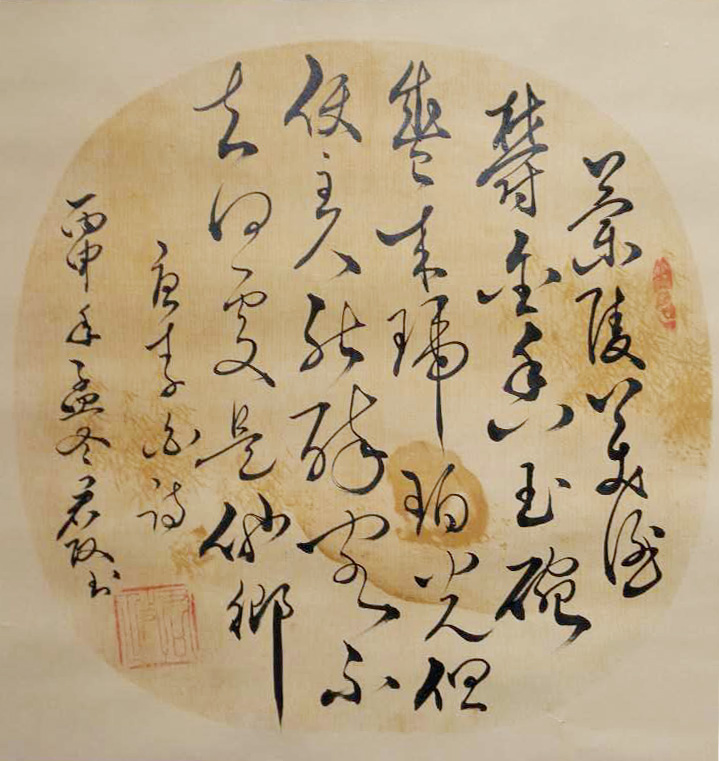 蘭陵美酒
鬱金香玉碗
盛来琥珀光但
使主人能醉客不
知何處是他鄉
唐李白詩
丙申年孟冬君书